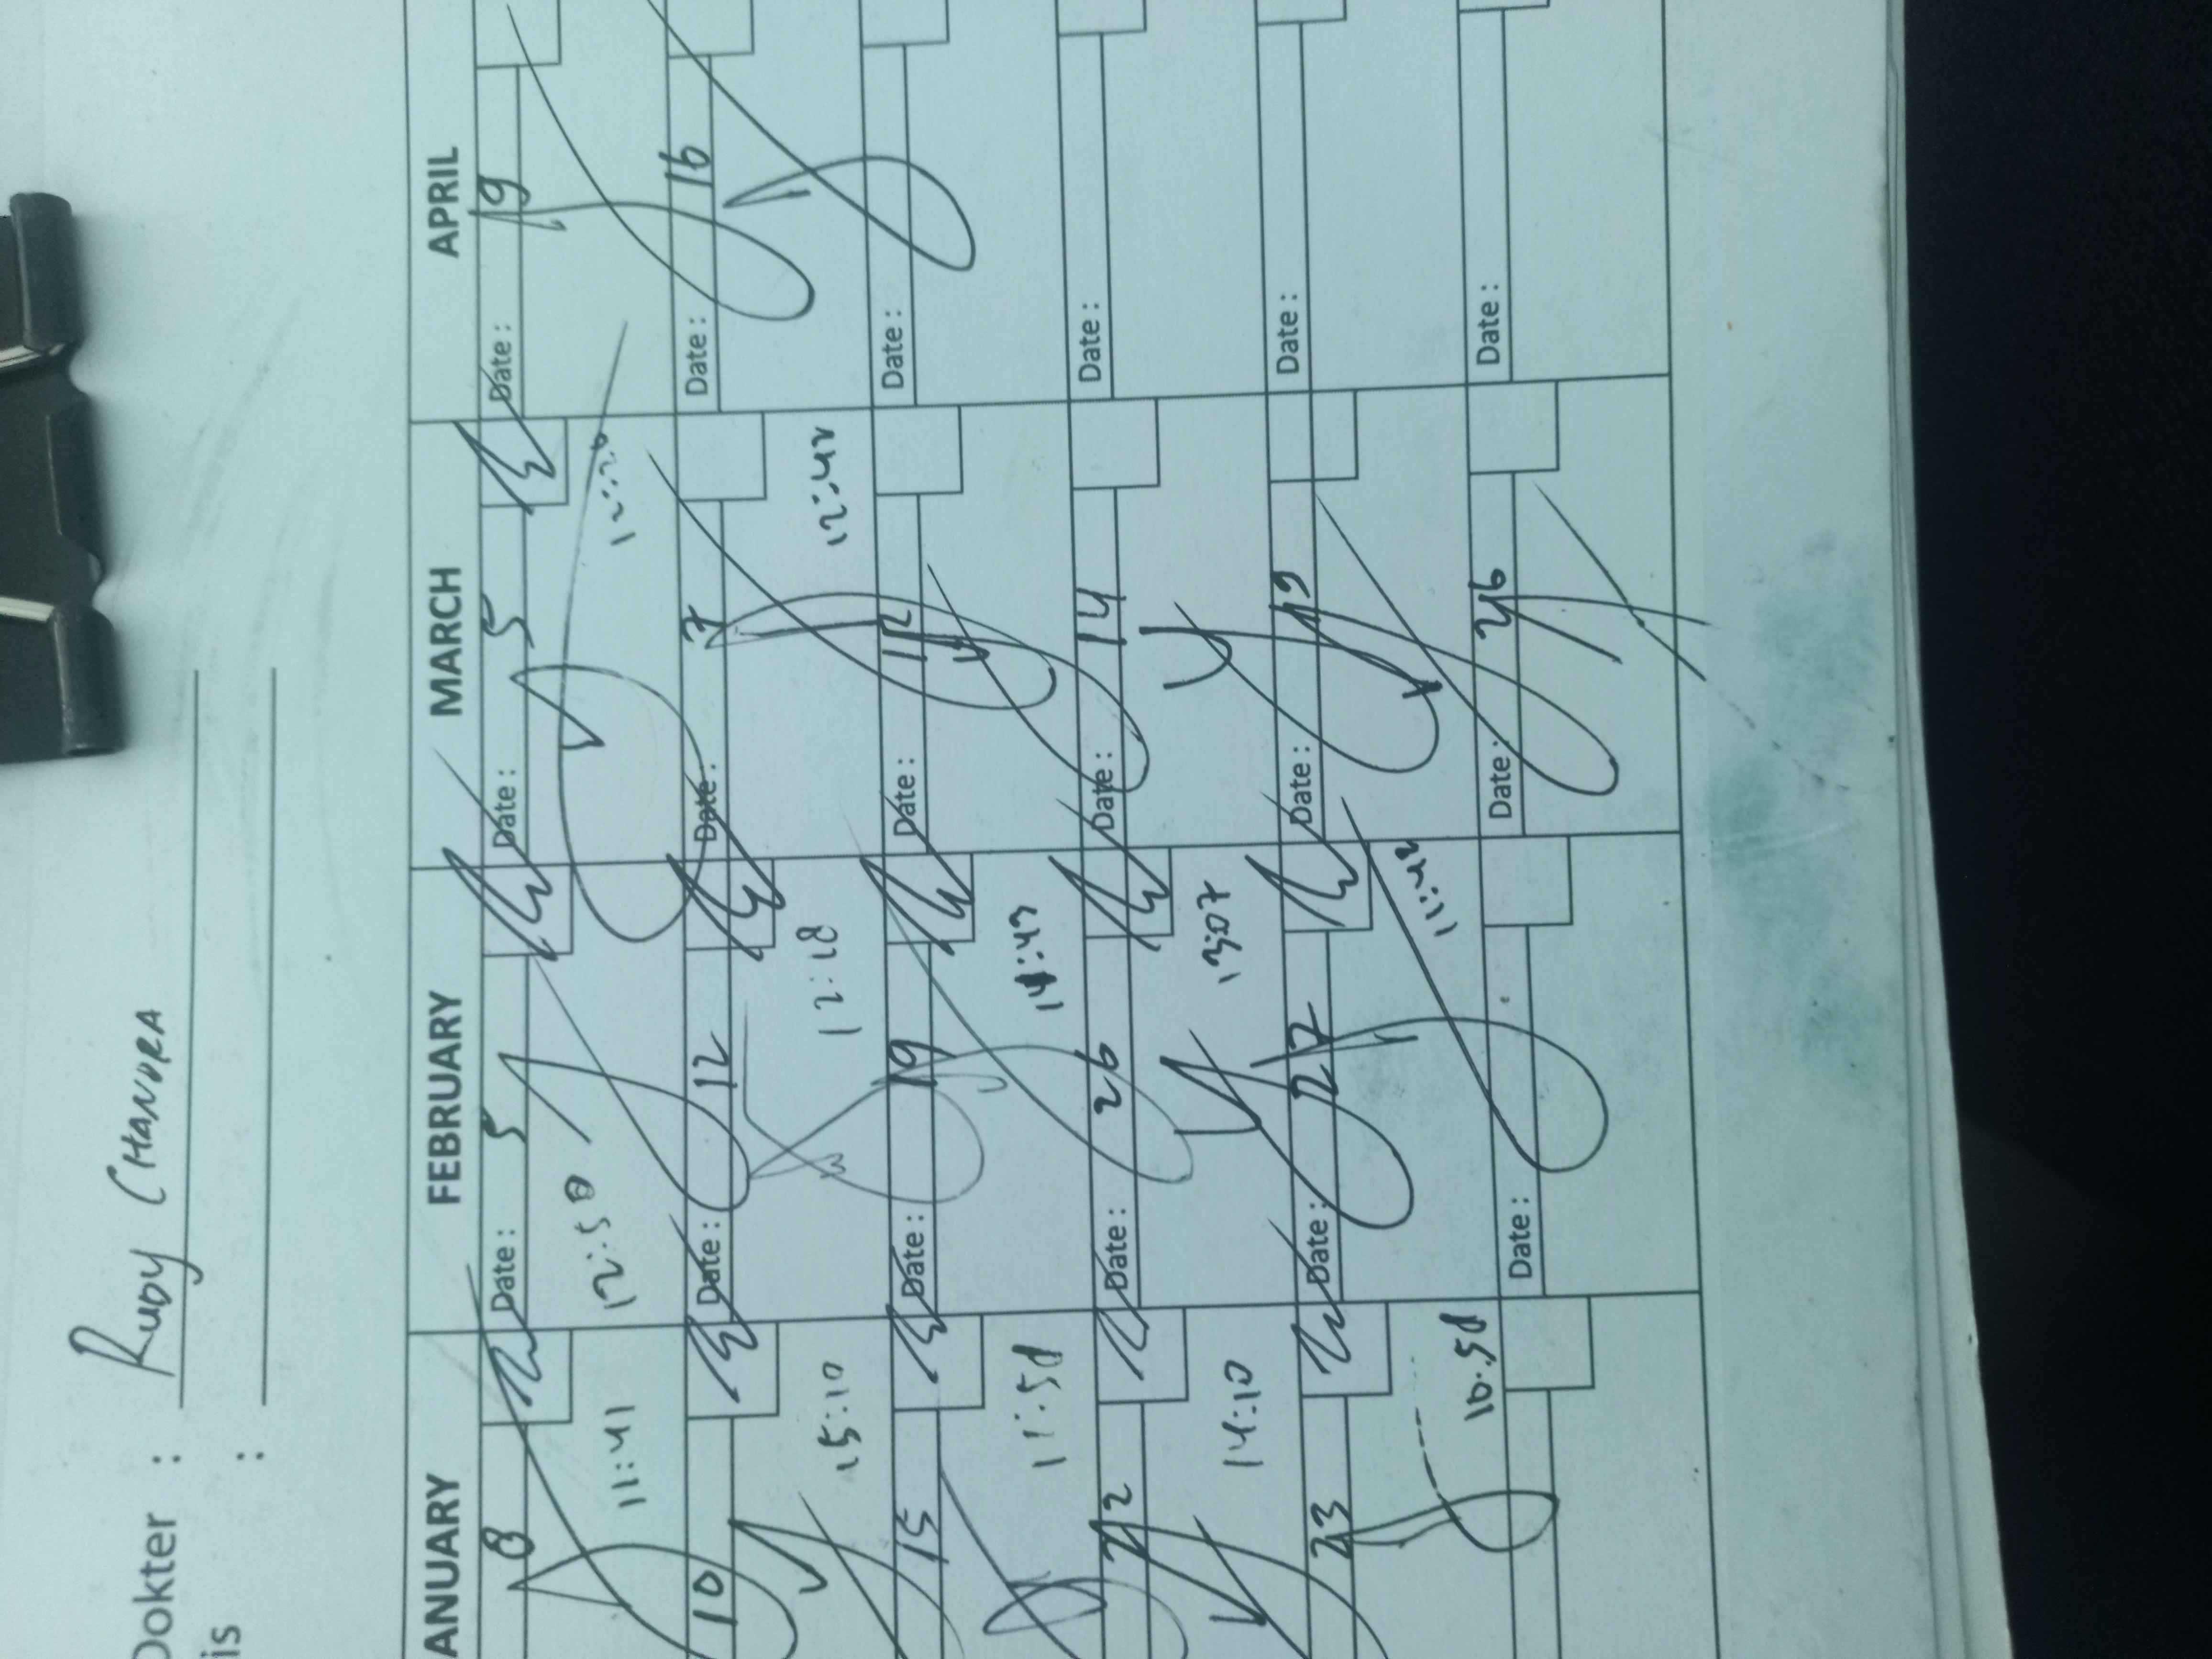 Dokter : RUDY CHANDRA
is :
ANUARY FEBRUARY MARCH APRIL
8 Date : 5 Date : 5 Date : 9
11:41 12:50 12:26
10 Date : 12 Date : 7 Date : 16
15:10 12:18 12:42
15 Date : 19 Date : 12 Date :
11:58 14:49
22 Date : 26 Date : 14 Date :
14:10 13:07
23 Date : 27 Date : 19 Date :
10.58 11:42
Date : Date : 26 Date :